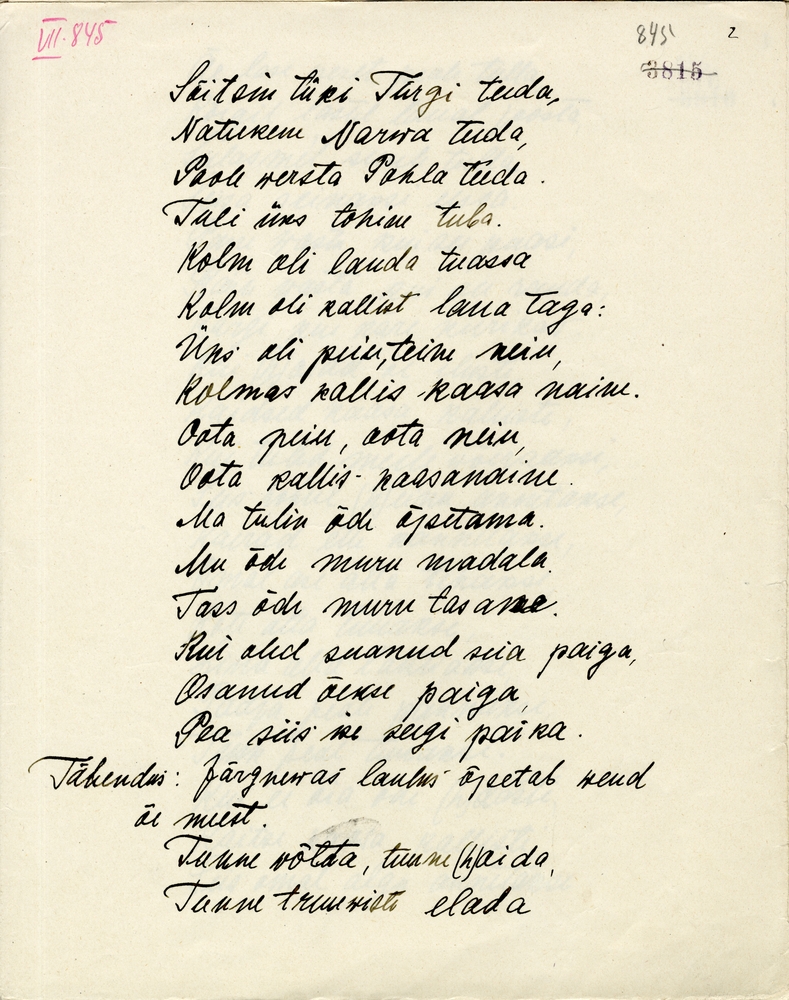 VII-845
845 2
3815
Sõitsin tüki Türgi teeda,
Natukene Narwa teeda,
Poole wersta Pohla teeda.
Tuli üks tohine tuba.
Kolm oli lauda tuassa
Kolm oli kallist laua taga:
Üks oli peiu, teine neiu,
Kolmas kallis kaasa naine.
Oota peiu, oota neiu,
Oota kallis-kaasanaine.
Ma tulin õde õpetama.
Mu õde muru madala.
Tass õde muru tasane.
Kui oled suanud seia paiga,
Osanud õekse paiga,
Pea siis ise seegi paika.
Tähendus: Järgnewas laulus õpetab wend
õe meest.
Tunne wõtta, tunne (h)oida,
Tunne truuwiste elada